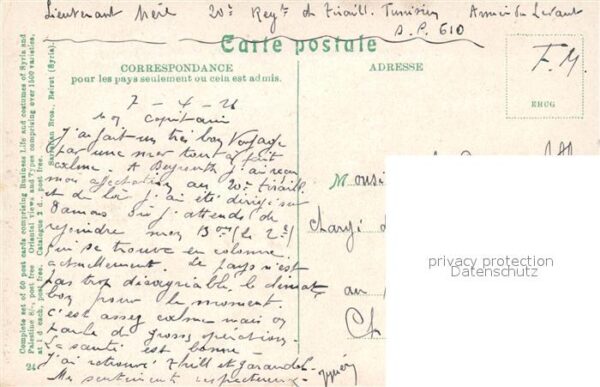 Lieutenant 20e Regt de Tiraill. Tunisien Armée du Levant
S.P. 610
Carte postale
CORRESPONDANCE
pour les pays seulement ou cela est admis.
ADRESSE
F.M.
7 - 4 - 26
Mon Capitaine
J'ai fait un très bon voyage
par une mer tout à fait
calme. A Beyrouth j'ai reçu
mon affectation au 20e Tiraill.
et de là j'ai été dirigé sur
Damas où j'attends de
rejoindre mon Bon (le 2e)
qui se trouve en colonne
actuellement. Le pays n'est
pas trop désagréable, le climat
bon pour le moment.
C'est assez calme mais on
parle de grosses opérations.
La santé est bonne -
J'ai retrouvé et
Mes sentiments respectueux -
Monsi
chargé d
au
Ch
privacy protection
Datenschutz
Complete set of 60 post cards comprising Business Life and costumes of Syria and
Palestine 8/-, post free Oriental views and Types comprising over 1500 varieties.
at 1 d each, post free. Catalogue 2 d., post free.
Sarrafian Bros., Beirut (Syria).
24